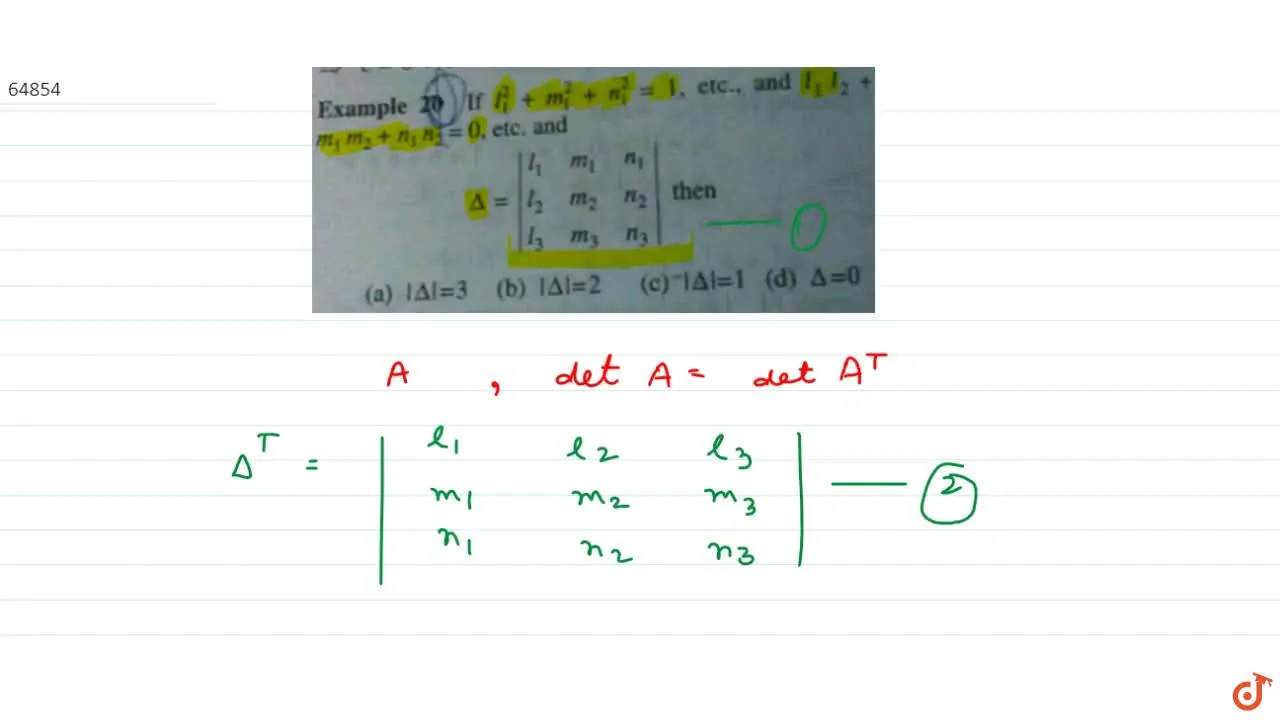 64854
Example 20 If l₁² + m₁² + n₁² = 1, etc., and l₁ l₂ +
m₁ m₂ + n₁ n₂ = 0, etc. and
Δ = | l₁ m₁ n₁ |
| l₂ m₂ n₂ | then
| l₃ m₃ n₃ |
(a) |Δ|=3 (b) |Δ|=2 (c) |Δ|=1 (d) Δ=0
A , det A = det Aᵀ
Δᵀ = | l₁ l₂ l₃ |
| m₁ m₂ m₃ | — 2
| n₁ n₂ n₃ |